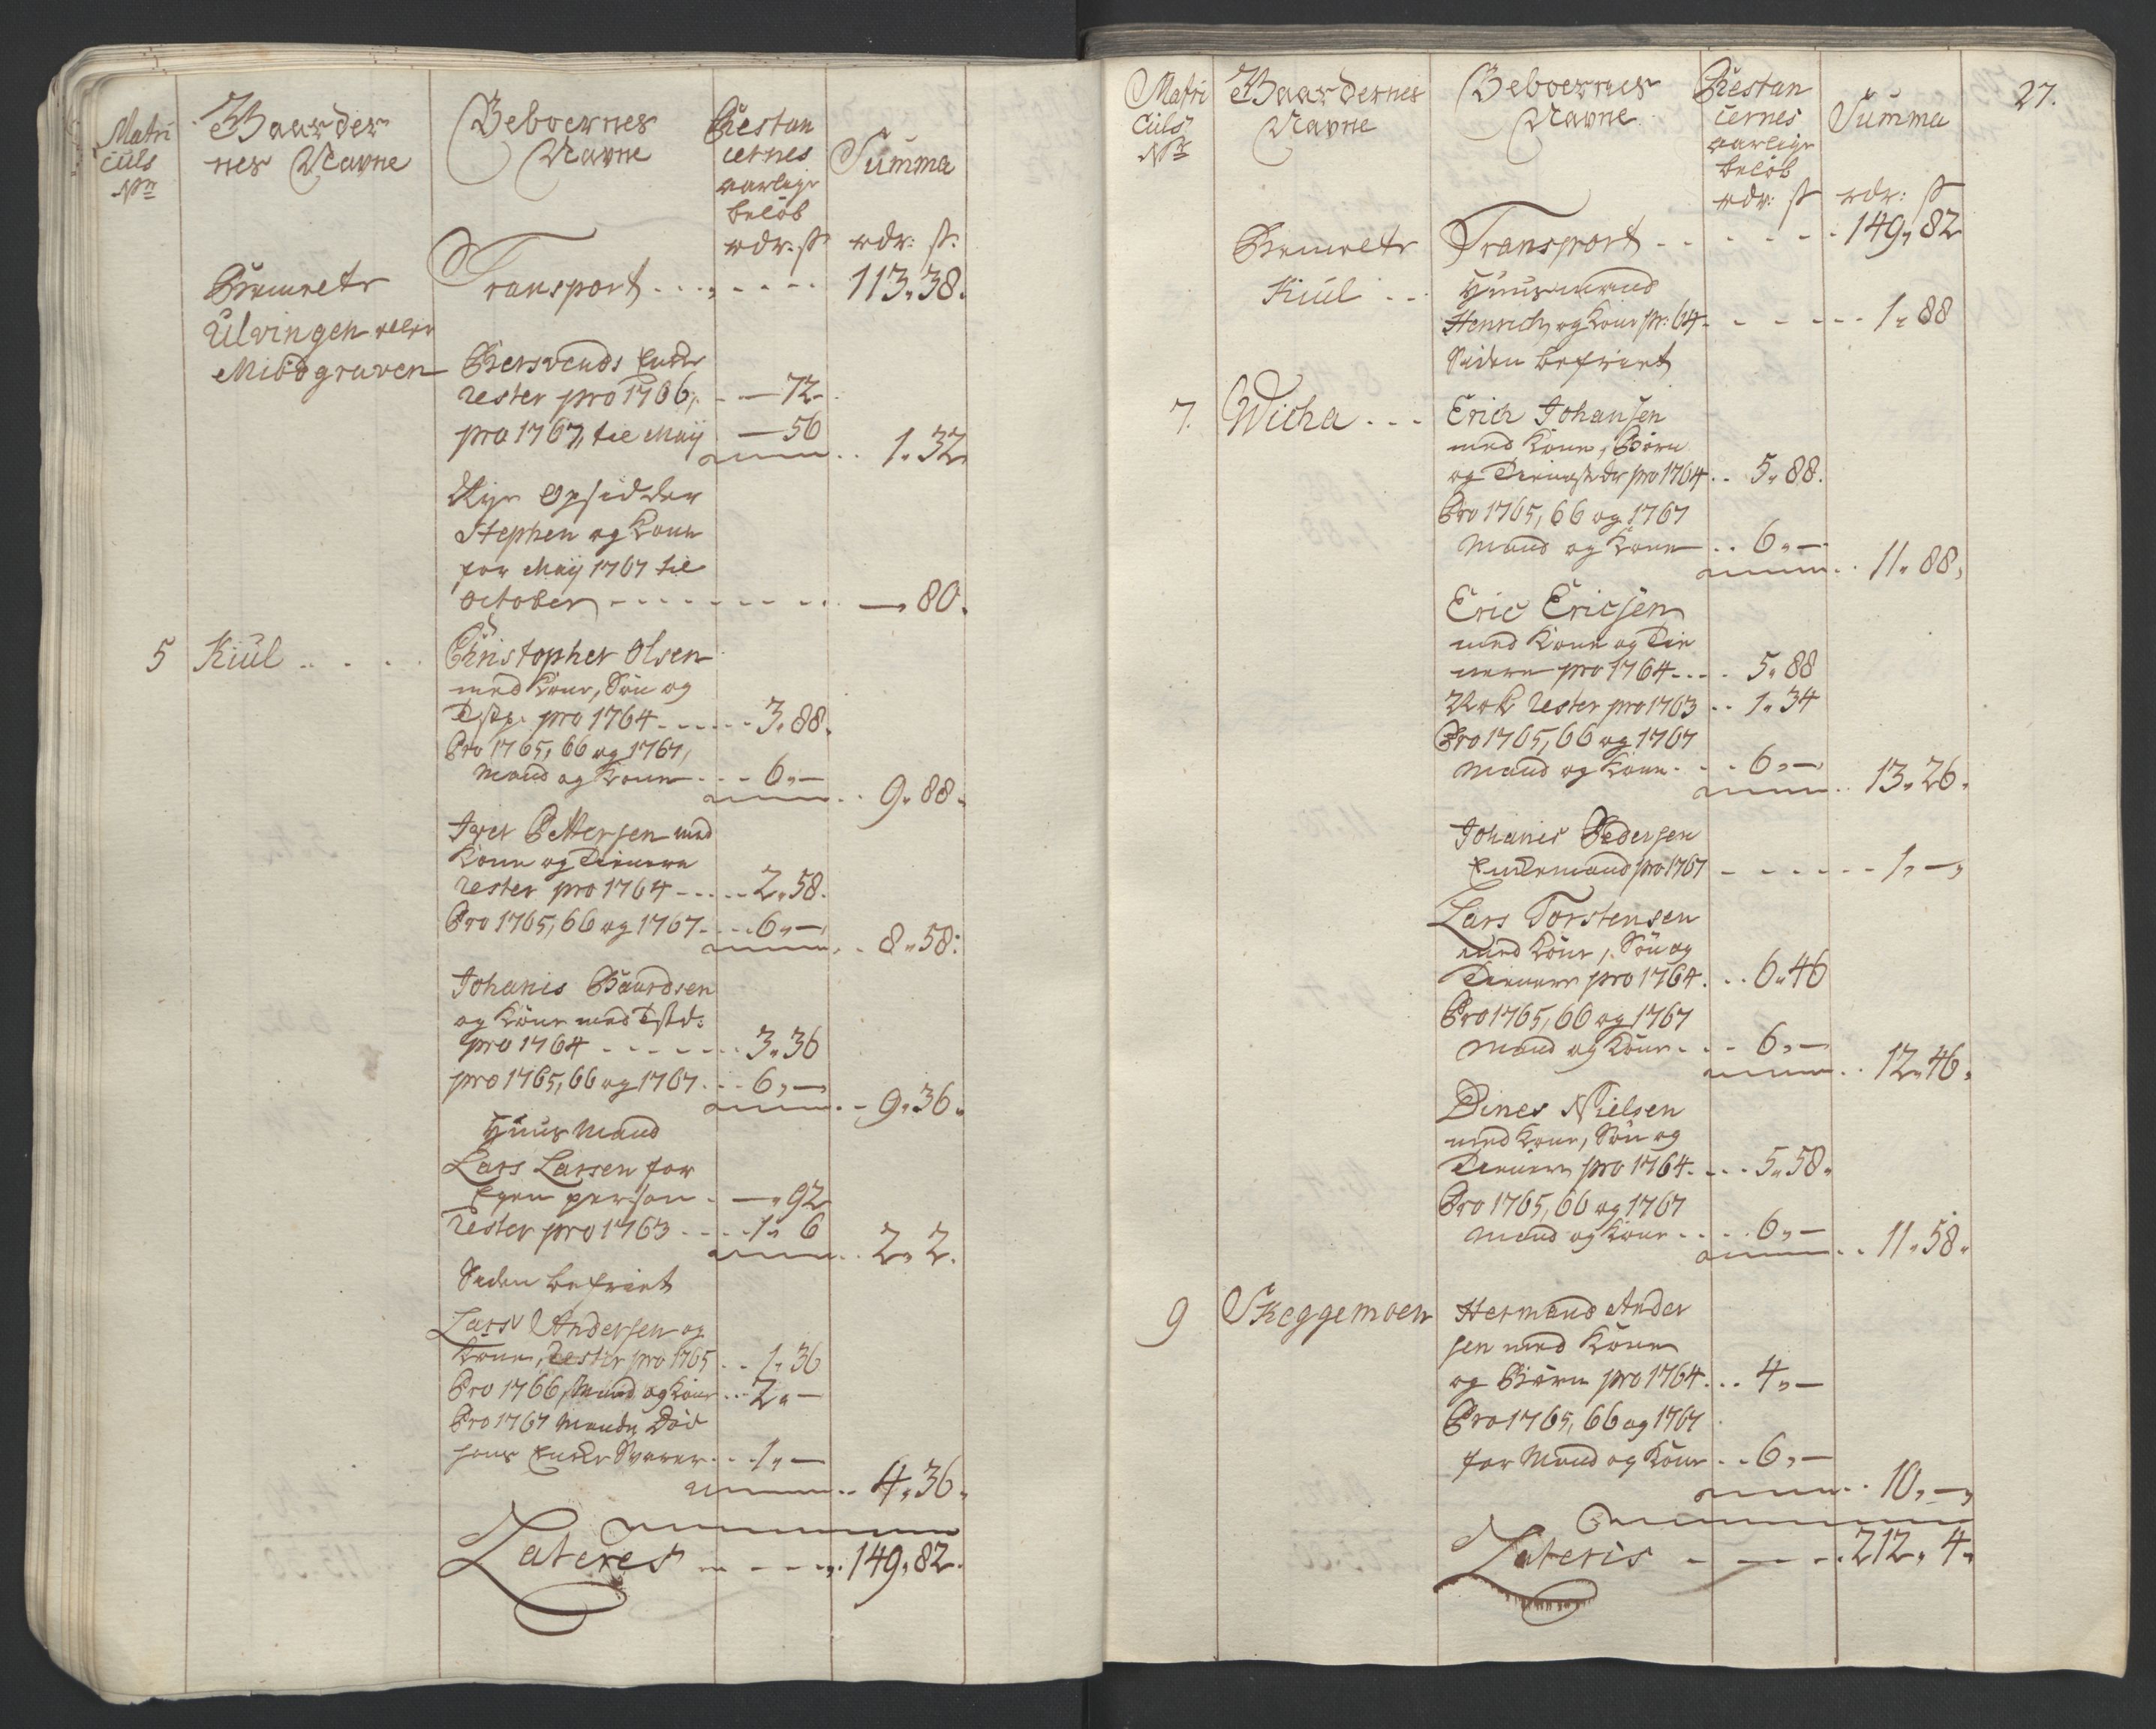 Matri
culs
No
Gaarder
nes Navne
Beboernes
Navne
Restan
cernes
aarlige
beløb
rdr: ß
Summa
rdr: ß:
Transport . . . . . . 113. 38.
Ulvingen eller
Midgraven
Bersvends Enke
rester pro 1766, - - 72 -
pro 1767, til Maij - 56
1. 32
Nye Opsidder
Stephen og Kone
for Maij 1767 til
October - - - - - - - - - 80.
5 Kiul . . . . Christopher Olsen
med Kone, Søn og
Tstp. pro 1764 - - - - - 3. 88.
Pro 1765, 66 og 1767,
Mand og Kone - - - 6. -
9. 88.
Iver Pettersen med
Kone og Tienere
rester pro 1764 - - - - - 2. 58.
Pro 1765, 66 og 1767 - - - - 6. -
8. 58.
Johanis Baardsen
og Kone med Tstd:
pro 1764 - - - - - - - 3. 36
pro 1765, 66 og 1767 - - - 6, -
9. 36.
Huus Mand
Lars Larsen for
Egen person - - . 92
rester pro 1763 - - - - 1. 6
2. 2.
Siden befriet
Lars Andersen og
Kone, rester pro 1765 . . 1. 36
Pro 1766, Mand og Kone . . . 2. -
Pro 1767 Manden Død
hans Enke Svarer . . . 1. -
4. 36.
Lateres - - - - - 149. 82.
27.
Matri
culs
No
Gaardernes
Navne
Beboernes
Navne
Restan
cernes
aarlige
beløb
rdr: ß
Summa
rdr: ß
Transport - - - - - - 149. 82
Kiul . . . Huusmand
Henrich og Kone pr: 64 - - - - - - 1. 88
Siden befriet
7. Wicha . . . Erich Johansen
med Kone, Børn
og Tienestedr pro 1764 . . 5. 88.
Pro 1765, 66 og 1767
Mand og Kone . . 6. -
11. 88,
Eric Ericsen
med Kone og Tie
nere pro 1764 - - - - 5. 88
Nok rester pro 1763 . . 1. 34
Pro 1765, 66 og 1767
Mand og Kone - - - 6. -
13. 26.
Johanis Pedersen
Enkemand pro 1767 - - - - - - - 1, -,
Lars Torstensen
med Kone, Søn og
Tienere pro 1764 . . . 6. 46
Pro 1765, 66 og 1767
Mand og Kone - - - 6, -
12. 46,
Dines Nielsen
med Kone, Søn og
Tienere pro 1764 - - - 5. 58.
Pro 1765, 66 og 1767
Mand og Kone - - - - 6. -
11. 58.
9 Skeggemoen Hermand Ander
sen med Kone
og Børn pro 1764 . . . 4. -
Pro 1765, 66 og 1767
for Mand og Kone . . 6. -
10, -,
Lateris - - - - 212. 4.